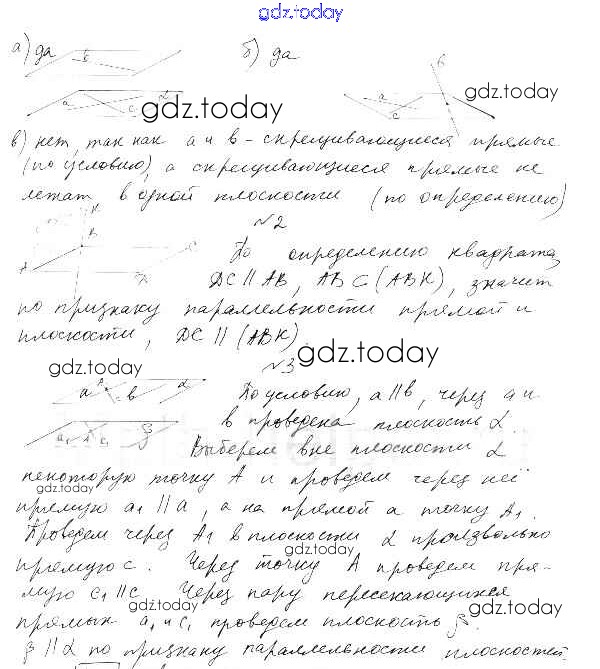 gdz.today
а) да б) да
gdz.today
gdz.today
в) нет, так как а и в - скрещивающиеся прямые
(по условию), а скрещивающиеся прямые не
лежат в одной плоскости (по определению)
№2
По определению квадрата,
DC || AB, AB ⊂ (ABK), значит
по признаку параллельности прямой и
плоскости, DC || (ABK)
gdz.today
gdz.today
№3
По условию, a || b, через а и
в проведена плоскость α.
Выберем вне плоскости α
некоторую точку А и проведем через неё
gdz.today
прямую a₁ || a, а на прямой а точку A₁.
Проведем через A₁ в плоскости α произвольно
gdz.today
прямую с. Через точку А проведем пря-
мую c₁ || c. Через пару пересекающихся
gdz.today
gdz.today
прямых a₁ и c₁ проведем плоскость β.
β || α по признаку параллельности плоскостей